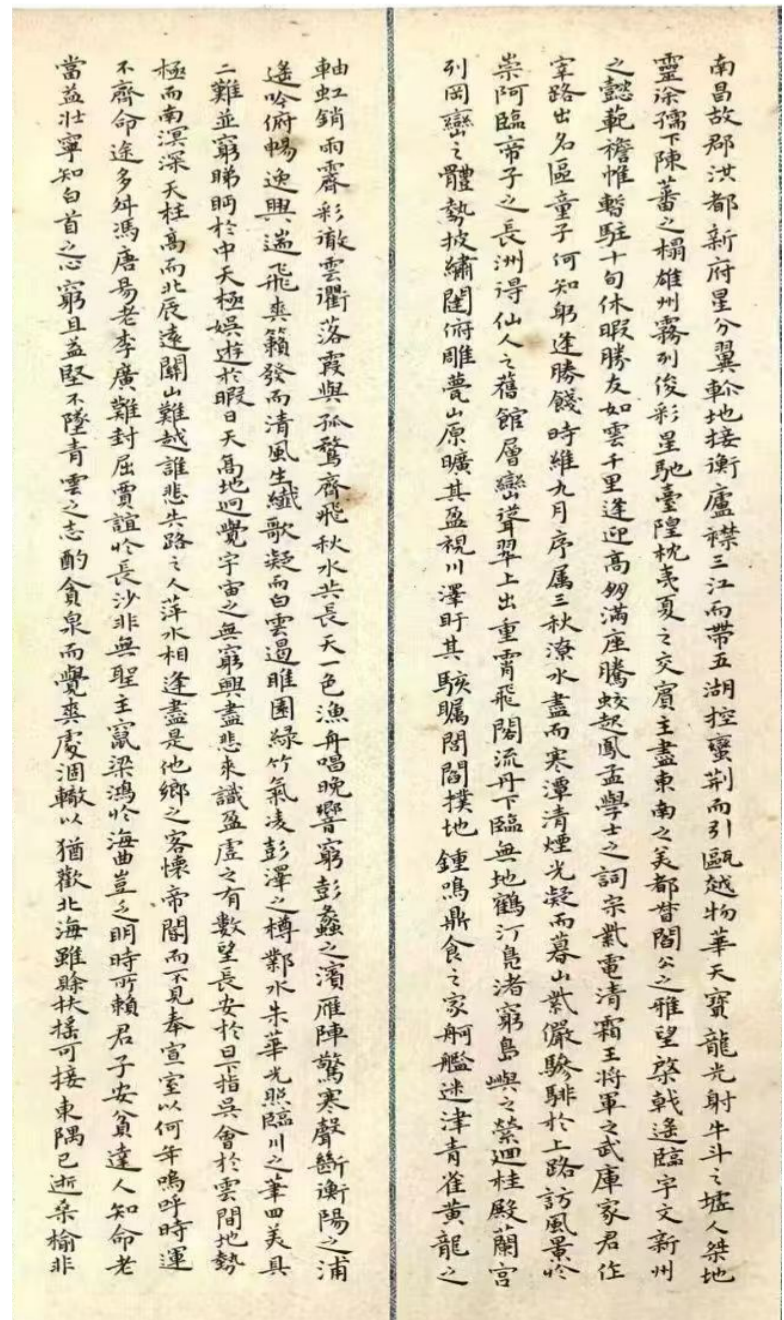 南昌故郡洪都新府星分翼軫地接衡廬襟三江而帶五湖控蠻荊而引甌越物華天寶龍光射牛斗之墟人桀地
靈徐孺下陳蕃之榻雄州霧列俊彩星馳臺隍枕夷夏之交賓主盡東南之美都督閻公之雅望棨戟遙臨宇文新州
之懿範襜帷暫駐十旬休暇勝友如雲千里逢迎高朋滿座騰蛟起鳳孟學士之詞宗紫電清霜王將軍之武庫家君作
宰路出名區童子何知躬逢勝餞時維九月序属三秋潦水盡而寒潭清煙光凝而暮山紫儼驂騑於上路訪風景於
崇阿臨帝子之長洲得仙人之舊館層巒聳翠上出重霄飛閣流丹下臨無地鶴汀鳧渚窮島嶼之縈迴桂殿蘭宮
列岡巒之體勢披繡闥俯雕甍山原曠其盈視川澤盱其駭矚閭閻撲地鍾鳴鼎食之家舸艦迷津青雀黃龍之
軸虹銷雨霽彩徹雲衢落霞與孤鶩齊飛秋水共長天一色漁舟唱晚響窮彭蠡之濱雁陣驚寒聲斷衡陽之浦
遙吟俯暢逸興遄飛爽籟發而清風生纖歌凝而白雲遏睢園綠竹氣凌彭澤之樽鄴水朱華光照臨川之筆四美具
二難並窮睇眄於中天極娛遊於暇日天高地迥覺宇宙之無窮興盡悲來識盈虛之有數望長安於日下指吳會於雲間地勢
極而南溟深天柱高而北辰遠關山難越誰悲失路之人萍水相逢盡是他鄉之客懷帝閽而不見奉宣室以何年嗚呼時運
不齊命途多舛馮唐易老李廣難封屈賈誼於長沙非無聖主竄梁鴻於海曲豈乏明時所賴君子安貧達人知命老
當益壯寧知白首之心窮且益堅不墜青雲之志酌貪泉而覺爽處涸轍以猶歡北海雖賒扶搖可接東隅已逝桑榆非